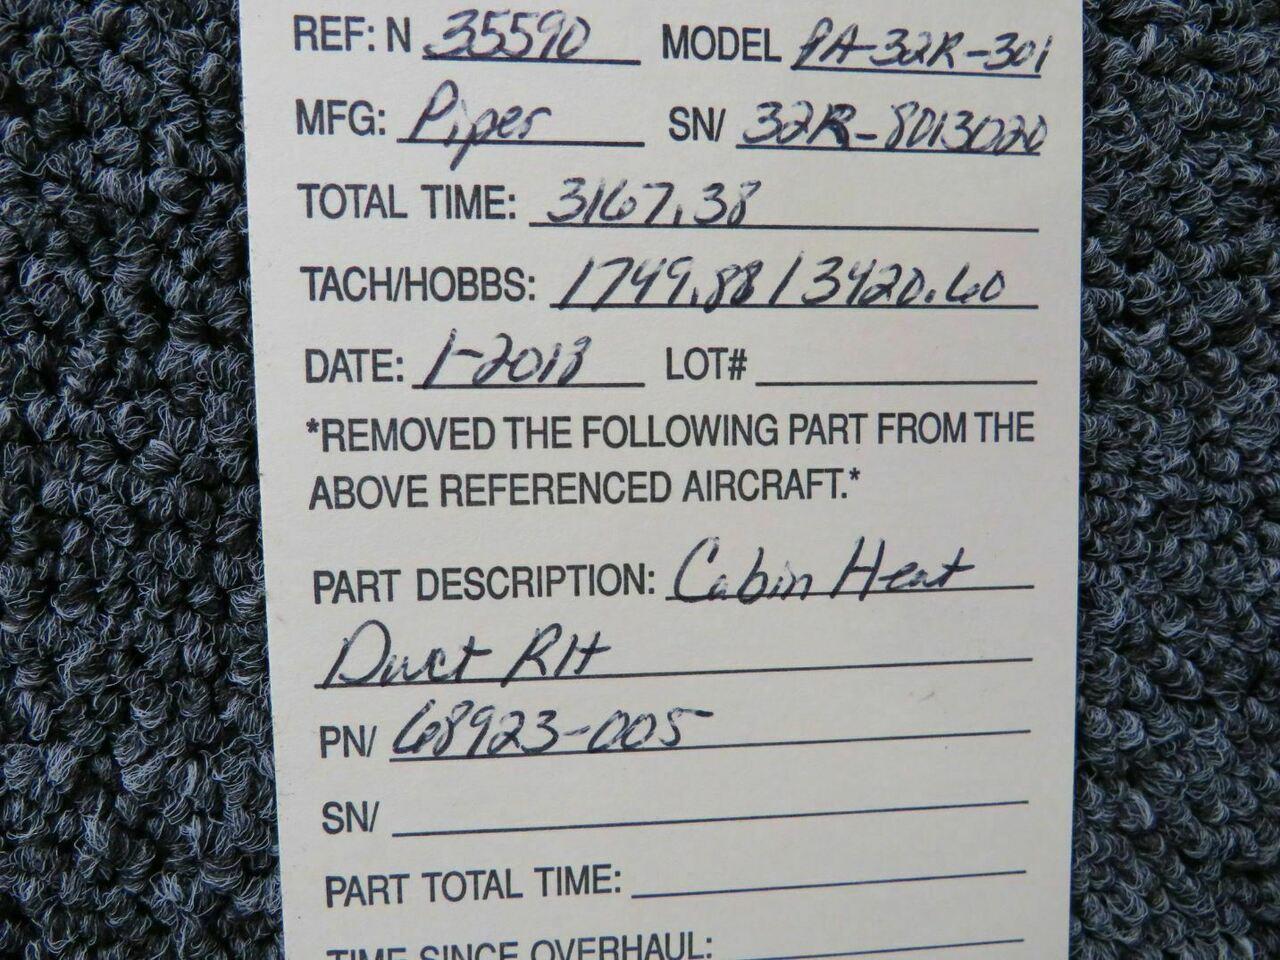 REF: N 35590 MODEL PA-32R-301
MFG: Piper SN/ 32R-8013020
TOTAL TIME: 3167.38
TACH/HOBBS: 1749.88 / 3420.60
DATE: 1-2018 LOT#
*REMOVED THE FOLLOWING PART FROM THE
ABOVE REFERENCED AIRCRAFT.*
PART DESCRIPTION: Cabin Heat
Duct RH
PN/ 68923-005
SN/
PART TOTAL TIME:
TIME SINCE OVERHAUL: